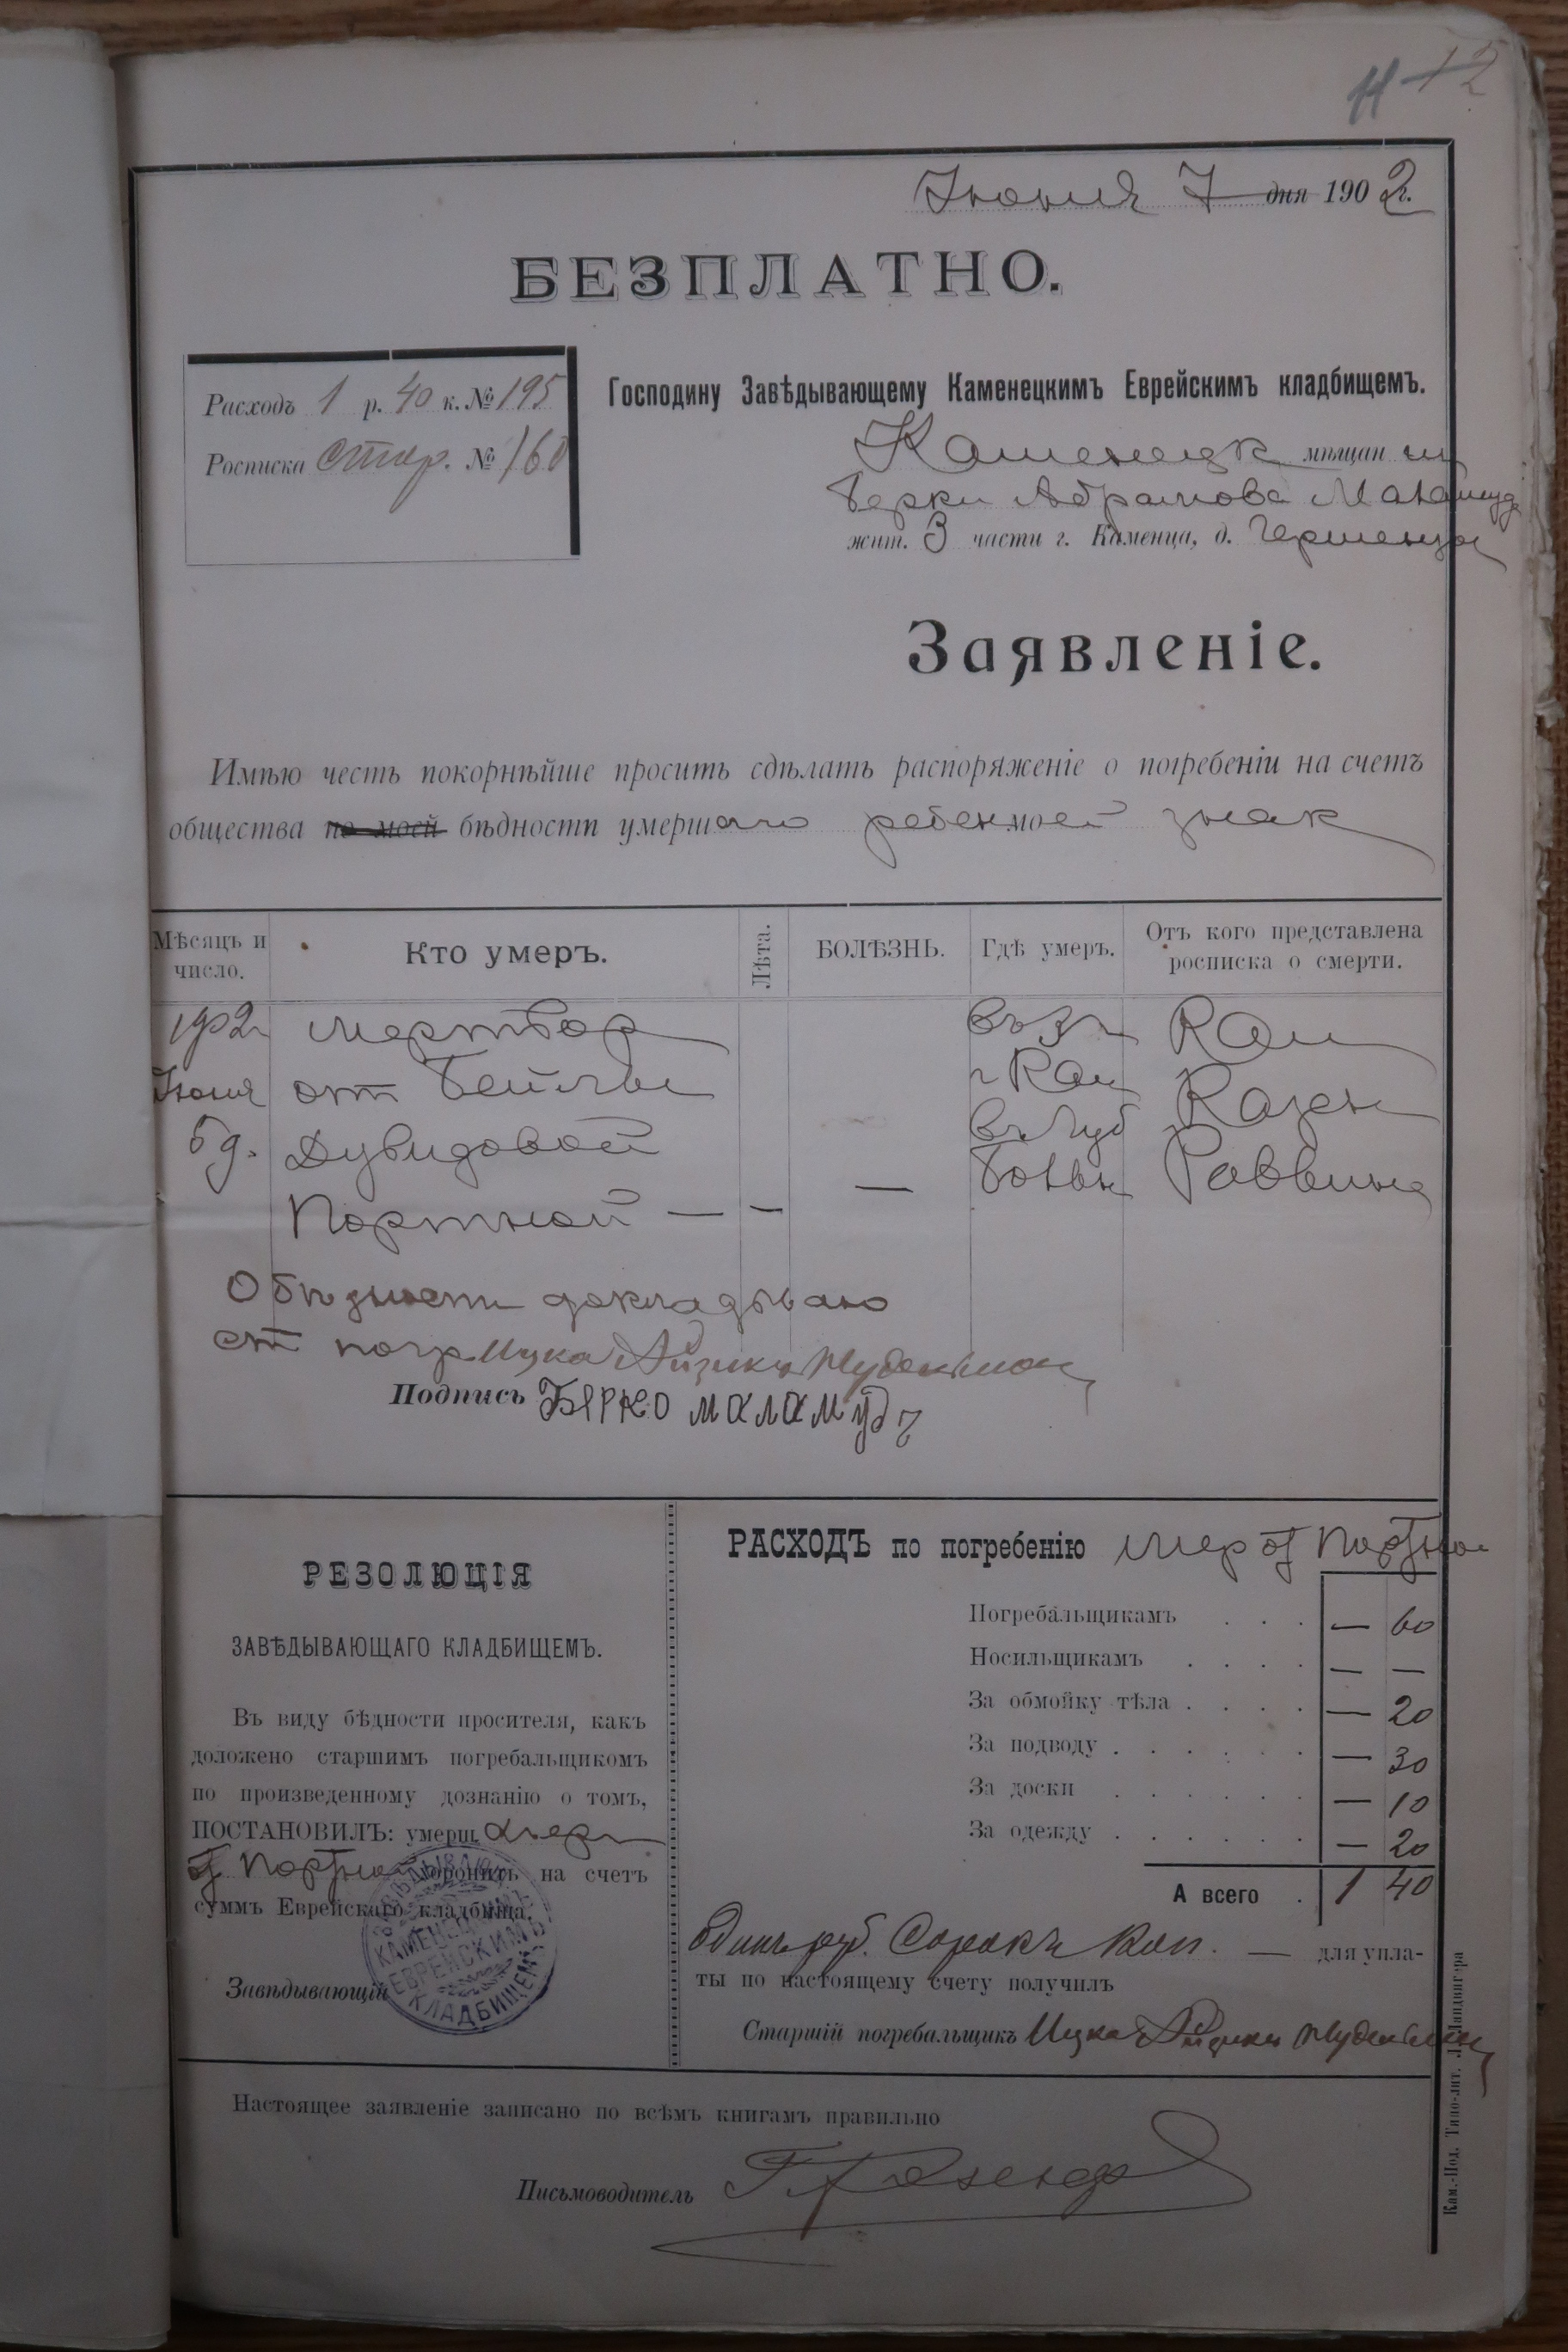 11 12
Июня 7 дня 1902 г.
БЕЗПЛАТНО.
Расходъ 1 р. 40 к. № 195
Росписка стар. № 160
Господину Завѣдывающему Каменецкимъ Еврейскимъ кладбищемъ.
Каменецк мѣщан
Берки Абрамова Маламуда
жит. 3 части г. Каменца, д. Гершенцы
Заявленіе.
Имѣю честь покорнѣйше просить сдѣлать распоряженіе о погребеніи на счетъ
общества по моей бѣдности умершаго ребен моей
Мѣсяцъ и число.
Кто умеръ.
Лѣта.
БОЛѢЗНЬ.
Гдѣ умеръ.
Отъ кого представлена росписка о смерти.
1902 мертвор Кам
Июня от Бейлы г Кам Казен
6 д. Дувидовой Раввина
Портной — — —
О бѣдности докладываю
ст погр Ицка Айзикъ
Подпись БЯРКО МАЛАМУДЪ
РЕЗОЛЮЦІЯ
ЗАВѢДЫВАЮЩАГО КЛАДБИЩЕМЪ.
Въ виду бѣдности просителя, какъ
доложено старшимъ погребальщикомъ
по произведенному дознанію о томъ,
ПОСТАНОВИЛЪ: умерш
от Портной хоронить на счетъ
суммъ Еврейскаго кладбища.
Завѣдывающій
ЗАВѢДЫВАЮЩ
КАМЕНЕЦКИМЪ
ЕВРЕЙСКИМЪ
КЛАДБИЩЕМЪ
РАСХОДЪ по погребенію мер от Портной
Погребальщикамъ . . . — 60
Носильщикамъ . . . . — —
За обмойку тѣла . . . . — 20
За подводу . . . . . . — 30
За доски . . . . . . — 10
За одежду . . . . . . — 20
А всего . 1 40
Одинъ руб. Сорокъ коп. — для упла-
ты по настоящему счету получилъ
Старшій погребальщикъ Ицка Айзикъ
Настоящее заявленіе записано по всѣмъ книгамъ правильно
Письмоводитель
Кам.-Под. Типо-лит. Л. Ландвигера